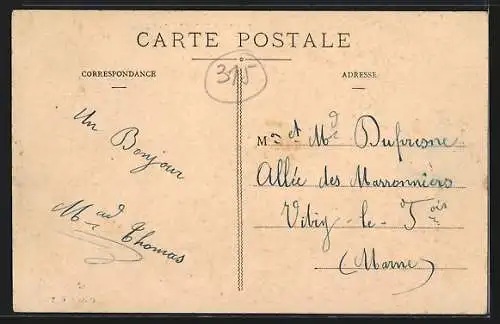 CARTE POSTALE
315
CORRESPONDANCE
ADRESSE
Un Bonjour
Mad Thomas
M r et Mde Dufresne
Allée des Marronniers
Vitry-le-Fois
(Marne)